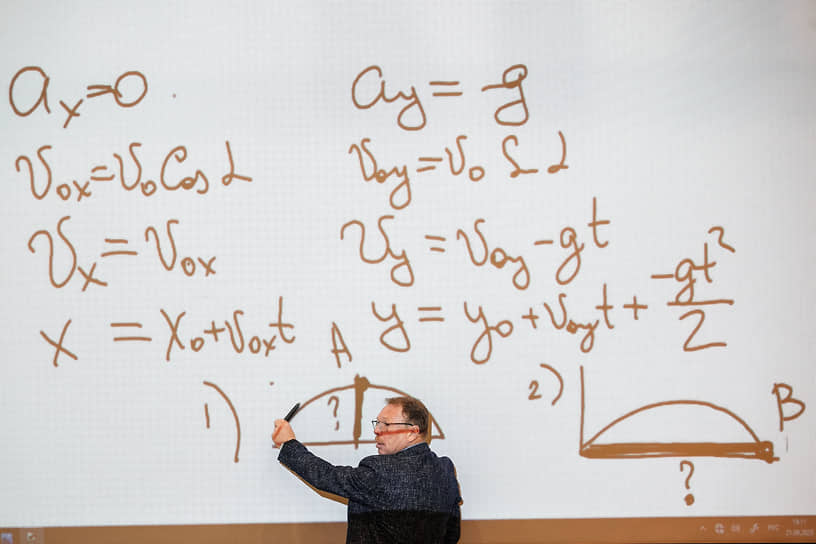 aₓ = 0    a_y = -g
v₀ₓ = v₀ Cos α    v₀y = v₀ S α
vₓ = v₀ₓ    v_y = v₀y - gt
x = x₀ + v₀ₓt    y = y₀ + v₀yt + -gt²/2
A
1) ?    2) B
?
РУС